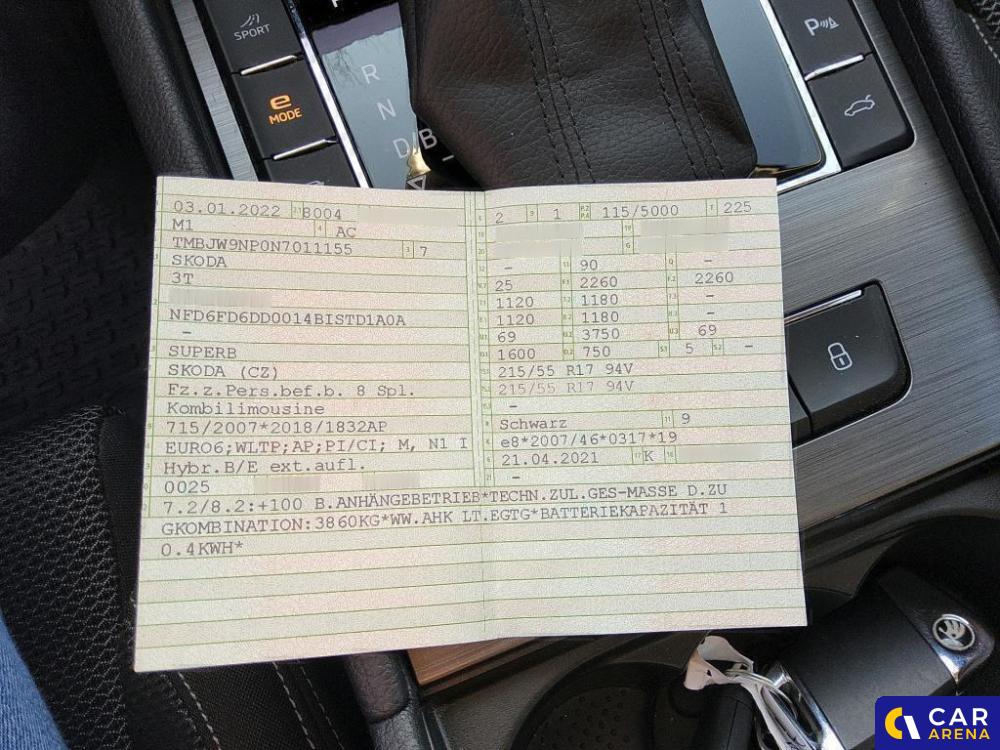 SPORT
e
MODE
R
N
D/B
P
03.01.2022 8004
M1 AC
TMBJW9NP0N7011155 7
SKODA
3T
NFD6FD6DD0014BISTD1A0A
–
SUPERB
SKODA (CZ)
Fz.z.Pers.bef.b. 8 Spl.
Kombilimousine
715/2007*2018/1832AP
EURO6;WLTP;AP;PI/CI; M, N1 I
Hybr.B/E ext.aufl.
0025
2 1 115/5000 225
– 90 –
25 2260 2260
1120 1180 –
1120 1180 –
69 3750 69
1600 750 5 –
215/55 R17 94V
215/55 R17 94V
–
Schwarz 9
e8*2007/46*0317*19
21.04.2021 K
–
7.2/8.2:+100 B.ANHÄNGEBETRIEB*TECHN.ZUL.GES-MASSE D.ZU
GKOMBINATION:3860KG*WW.AHK LT.EGTG*BATTERIEKAPAZITÄT 1
0.4KWH*
CAR
ARENA